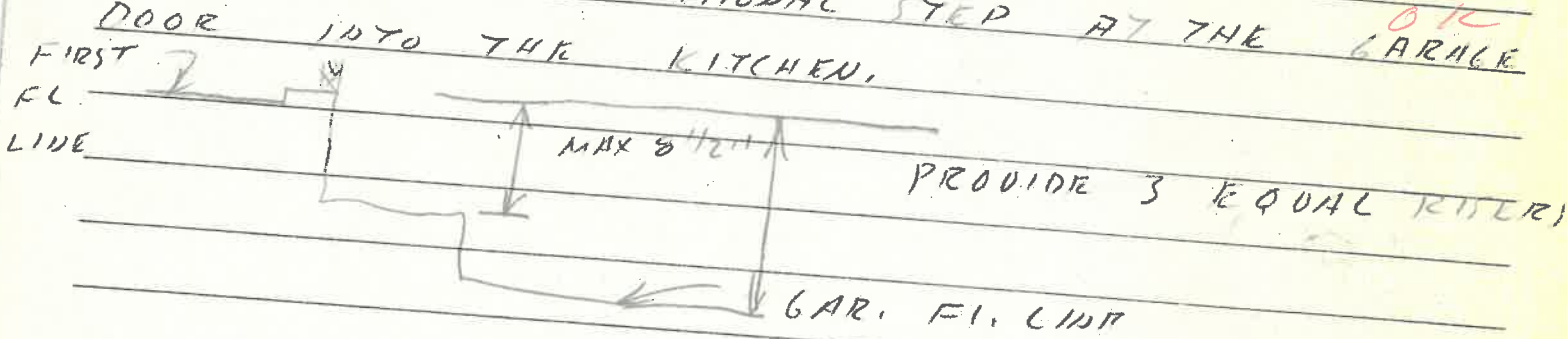 STEP AT THE GARAGE
OK
DOOR INTO THE KITCHEN.
FIRST
FL.
LINE
MAX 8 1/2"
PROVIDE 3 EQUAL RISERS
GAR. FL. LINE